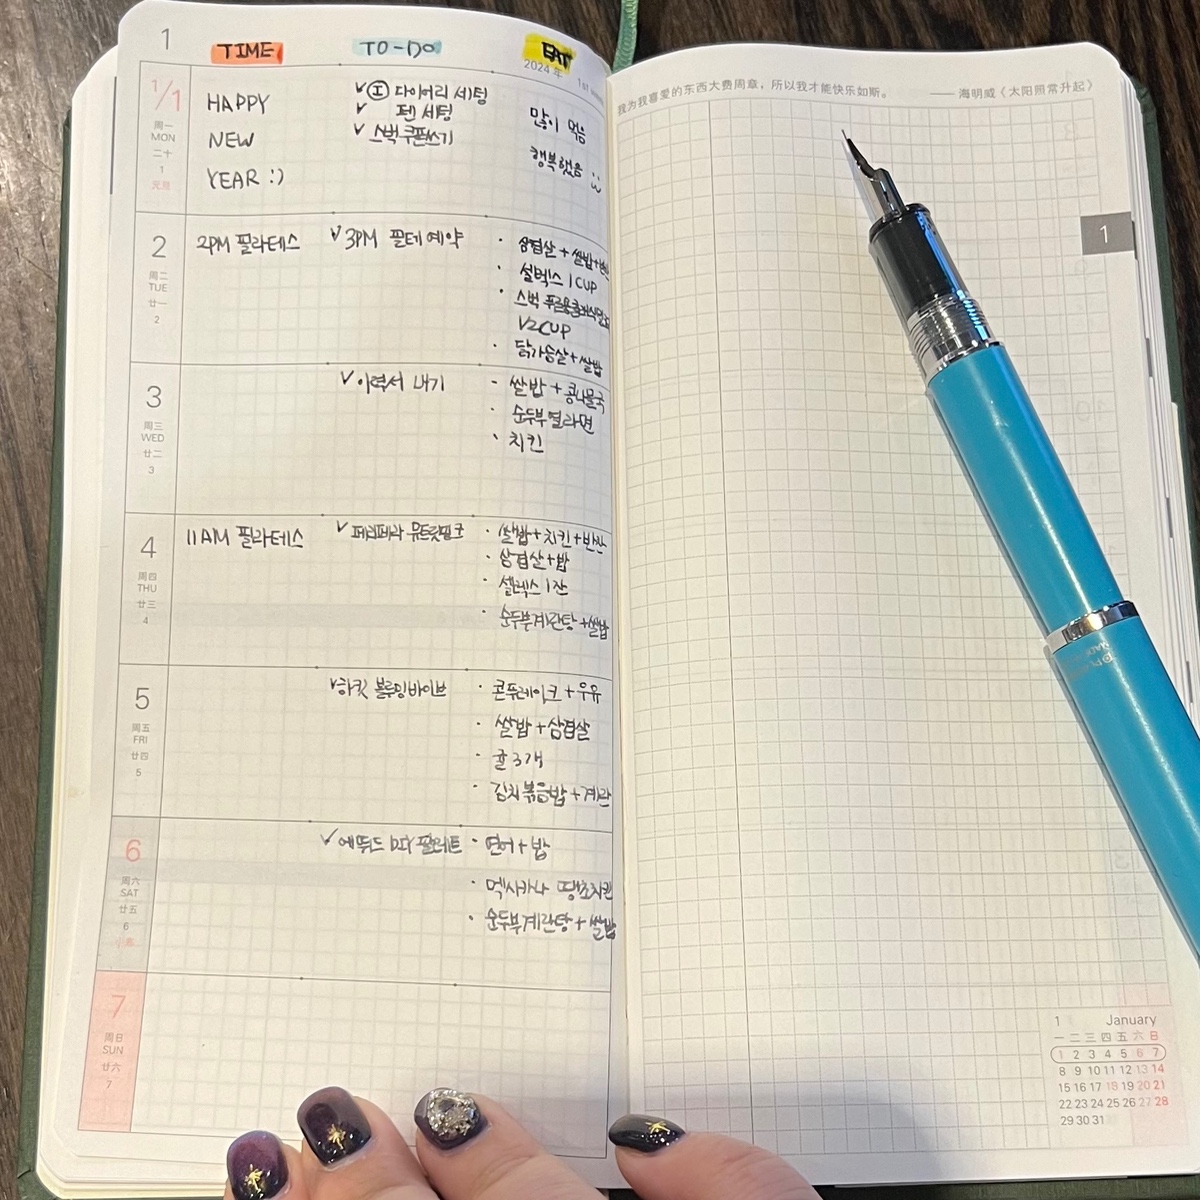 1
TIME
TO-DO
EAT
2024 年
1/1
周一
MON
二十
1
元旦
HAPPY
NEW
YEAR :)
✓ 다이어리 세팅
✓ 펜 세팅
✓ 스벅 쿠폰쓰기
많이 먹음
행복했음
2
周二
TUE
廿一
2
2PM 필라테스
✓ 3PM 필테 예약
· 삼겹살 + 쌀밥 +
· 셀렉스 1CUP
· 스벅
1/2CUP
· 닭가슴살 + 쌀밥
3
周三
WED
廿二
3
✓ 이력서 내기
· 쌀밥 + 콩나물국
· 순두부열라면
· 치킨
4
周四
THU
廿三
4
11AM 필라테스
✓ 페리페라
· 쌀밥 + 치킨 + 반찬
· 삼겹살 + 밥
· 셀렉스 1잔
· 순두부계란탕 + 쌀밥
5
周五
FRI
廿四
5
✓ 하킷 블루밍바이브
· 콘푸레이크 + 우유
· 쌀밥 + 삼겹살
· 귤 3개
· 김치볶음밥 + 계란
6
周六
SAT
廿五
6
小寒
✓ 에뛰드 팔레트
· 연어 + 밥
· 멕시카나 땡초치킨
· 순두부계란탕 + 쌀밥
7
周日
SUN
廿六
7
我为我喜爱的东西大费周章，所以我才能快乐如斯。 —— 海明威《太阳照常升起》
1
1 January
一 二 三 四 五 六 日
1 2 3 4 5 6 7
8 9 10 11 12 13 14
15 16 17 18 19 20 21
22 23 24 25 26 27 28
29 30 31